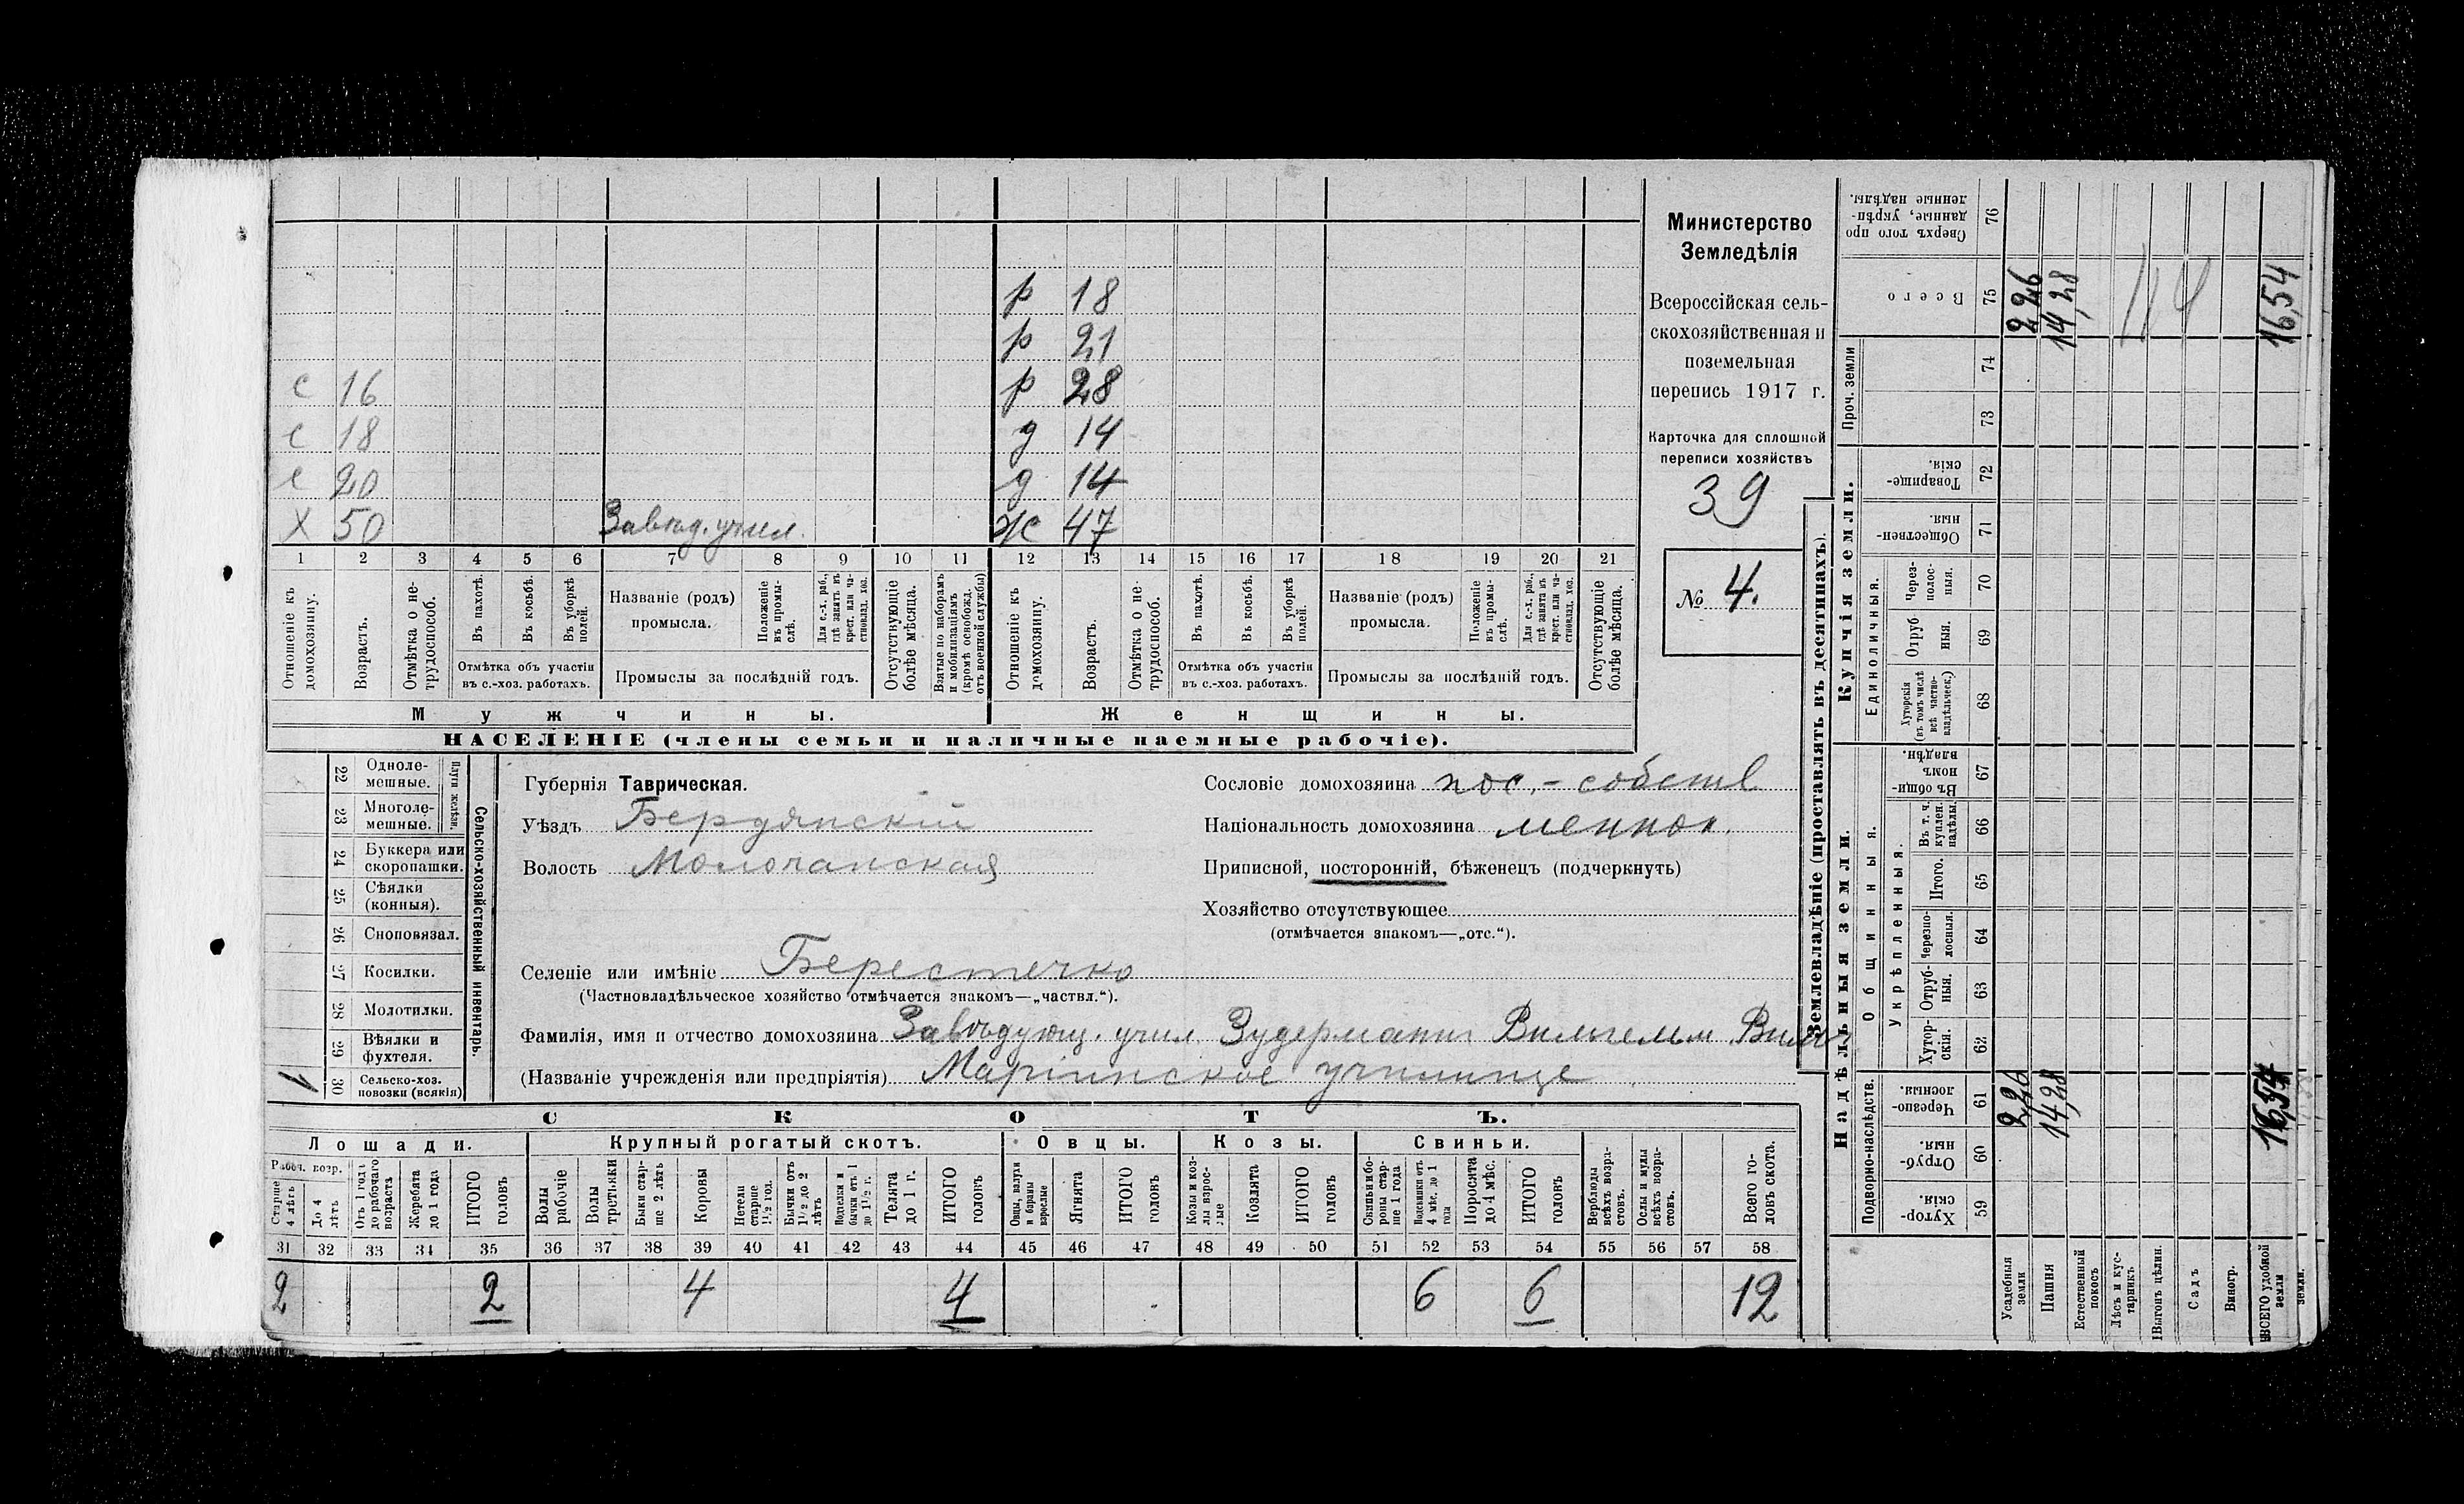 р 18
р 21
с 16 р 28
с 18 д 14
с 20 д 14
Х 50 Завѣд. учил. ж 47
1 2 3 4 5 6 7 8 9 10 11 12 13 14 15 16 17 18 19 20 21
Отношеніе къ домохозяину.
Возрастъ.
Отмѣтка о не-трудоспособ.
Въ пахотѣ.
Въ косьбѣ.
Въ уборкѣ полей.
Отмѣтка объ участіи въ с.-хоз. работахъ.
Названіе (родъ) промысла.
Положеніе въ промы-слѣ.
Для с.-х. раб., гдѣ занятъ въ крест. или ча-стновлад. хоз.
Промыслы за послѣдній годъ.
Отсутствующіе болѣе мѣсяца.
Взятые по наборамъ и мобилизаціямъ (кромѣ освобожд. отъ военной службы)
Отношеніе къ домохозяину.
Возрастъ.
Отмѣтка о не-трудоспособ.
Въ пахотѣ.
Въ косьбѣ.
Въ уборкѣ полей.
Отмѣтка объ участіи въ с.-хоз. работахъ.
Названіе (родъ) промысла.
Положеніе въ промы-слѣ.
Для с.-х. раб., гдѣ занята въ крест. или ча-стновлад. хоз.
Промыслы за послѣдній годъ.
Отсутствующіе болѣе мѣсяца.
Мужчины. Женщины.
НАСЕЛЕНІЕ (члены семьи и наличные наемные рабочіе).
Министерство
Земледѣлія
Всероссійская сель-
скохозяйственная и
поземельная
перепись 1917 г.
Карточка для сплошной
переписи хозяйствъ
39
№ 4.
Сельско-хозяйственный инвентарь.
Плуги желѣзн.
22 Одноле-мешные.
23 Многоле-мешные.
24 Буккера или скоропашки.
25 Сѣялки (конныя).
26 Сноповязал.
27 Косилки.
28 Молотилки.
29 Вѣялки и фухтеля.
30 Сельско-хоз. повозки (всякія)
Губернія Таврическая.
Уѣздъ Бердянскій
Волость Молочанская
Сословіе домохозяина пос.-собств
Національность домохозяина меннон.
Приписной, посторонній, бѣженецъ (подчеркнуть)
Хозяйство отсутствующее
(отмѣчается знакомъ—„отс.“).
Селеніе или имѣніе Берестечко
(Частновладѣльческое хозяйство отмѣчается знакомъ—„частвл.“).
Фамилія, имя и отчество домохозяина Завѣдующ. учил. Зудерманъ Вильгельм Вильг
(Названіе учрежденія или предпріятія) Маріинское училище
СКОТЪ.
Лошади. Крупный рогатый скотъ. Овцы. Козы. Свиньи.
Рабоч. возр.
Старше 4 лѣтъ
До 4 лѣтъ
Отъ 1 года до рабочаго возраста
Жеребята до 1 года
ИТОГО головъ
Волы рабочіе
Волы третьяки
Быки стар-ше 2 лѣтъ
Коровы
Нетели старше 1½ год.
Бычки отъ 1½ до 2 лѣтъ
Телята до 1 г.
ИТОГО головъ
Овцы, валухи и бараны взрослые
Ягнята
ИТОГО головъ
Козы и коз-лы взрос-лые
Козлята
ИТОГО головъ
Свиньи и бо-ровы стар-ше 1 года
Подсвинки отъ 4 мѣс. до 1 года
Поросята до 4 мѣс.
ИТОГО головъ
Верблюды всѣхъ возра-стовъ.
Ослы и мулы всѣхъ возра-стовъ.
Всего го-ловъ скота.
31 32 33 34 35 36 37 38 39 40 41 42 43 44 45 46 47 48 49 50 51 52 53 54 55 56 57 58
2 2 4 4 6 6 12
Землевладѣніе (проставлять въ десятинахъ).
Надѣльныя земли. Купчія земли. Проч. земли
Подворно-наслѣдств.
Общинныя.
Укрѣпленныя.
Единоличныя.
59 Хутор-скія.
60 Отруб-ныя.
61 Черезпо-лосныя.
62 Хутор-скія.
63 Отруб-ныя.
64 Черезпо-лосныя.
65 Итого.
66 Въ т. ч. куплен. надѣлы.
67 Въ общи-нномъ владѣн.
68 Хуторскія (въ томъ числѣ всѣ частно-владѣльческ.)
69 Отруб-ныя.
70 Через-полос-ныя.
71 Обществен-ныя.
72 Товарище-скія.
73
74
75 Всего
76 Сверхъ того про-данные, укрѣп-ленные надѣлы.
Усадебныя земли 2,26 2,26
Пашня 14,28 14,28
Естественный покосъ
Лѣсъ и кус-тарникъ
Выгонъ цѣлин.
Садъ
Виногр.
ВСЕГО удобной земли 16,54 16,54